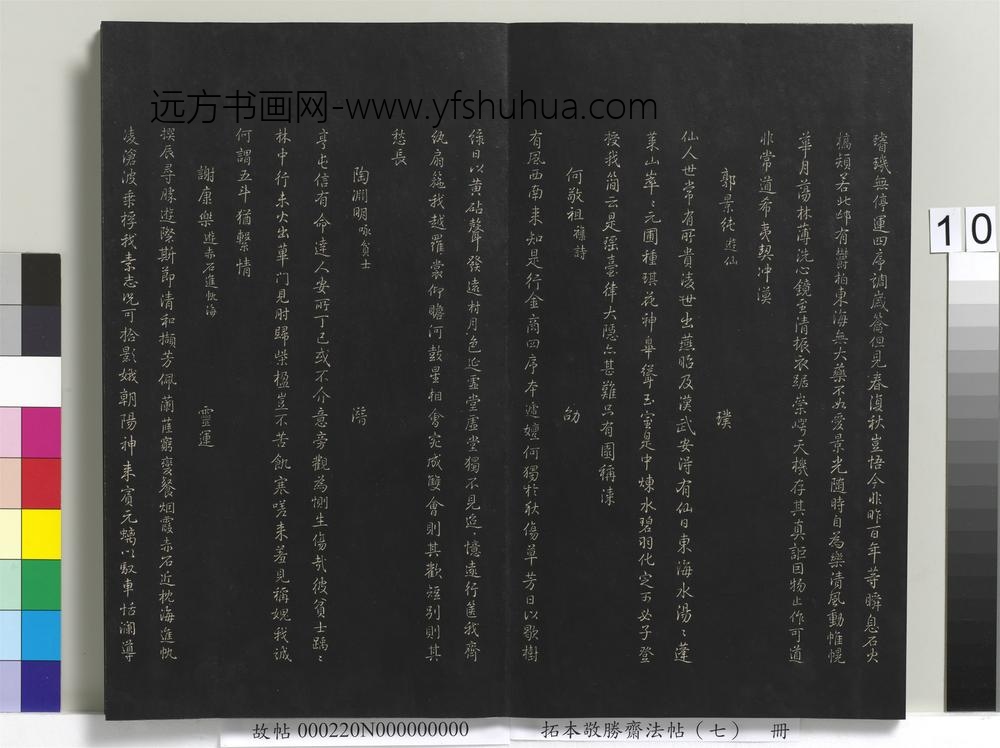 远方书画网-www.yfshuhua.com
璿璣無停運四序調歲籥但見春復秋豈悟今非昨百年等瞬息石火
槁頰若此邙有鬱柏東海無大藥不如愛景光随時自為樂清風動帷幌
華月蕩林薄洗心鏡至清振衣踞崇崿天機存其真詎因物止作可道
非常道希夷契沖漠
郭景純 遊仙 璞
仙人世常有所貴凌世出燕昭及漢武安得有仙日東海水湯々蓬
萊山崒々元圃種琪花神皋聳玉室是中煉水碧羽化定可必子登
授我簡云是瑶臺律大隱亦甚難只有園稱漆
何敬祖 雜詩 劭
有風西南来知是行金商四序本遞嬗何獨於秋傷草芳日以歇樹
綠日以黄砧聲發遠村月色延虛堂虛堂獨不見迢々憶遠行篋我齊
紈扇箍我越羅裳仰瞻河鼓星相會究成雙會則其歡短别則其
愁長
陶淵明 咏貧士 潛
亨屯信有命達人安所丁己或不介意旁觀為惻生傷哉彼貧士踽々
林中行未火出蓽門見肘歸柴楹豈不苦飢寒嗟来羞見稱娓我诚
何謂五斗猶繫情
謝康樂 遊赤石進帆海 靈運
撰辰尋勝遊際斯節清和擷芳佩蘭蕐窮變餐烟霞赤石近枕海進帆
凌滄波乘桴我素志况可拾影娥朝陽神来賓元螭以馭車怙瀾導
10
故帖 000220N000000000
拓本敬勝齋法帖（七） 冊